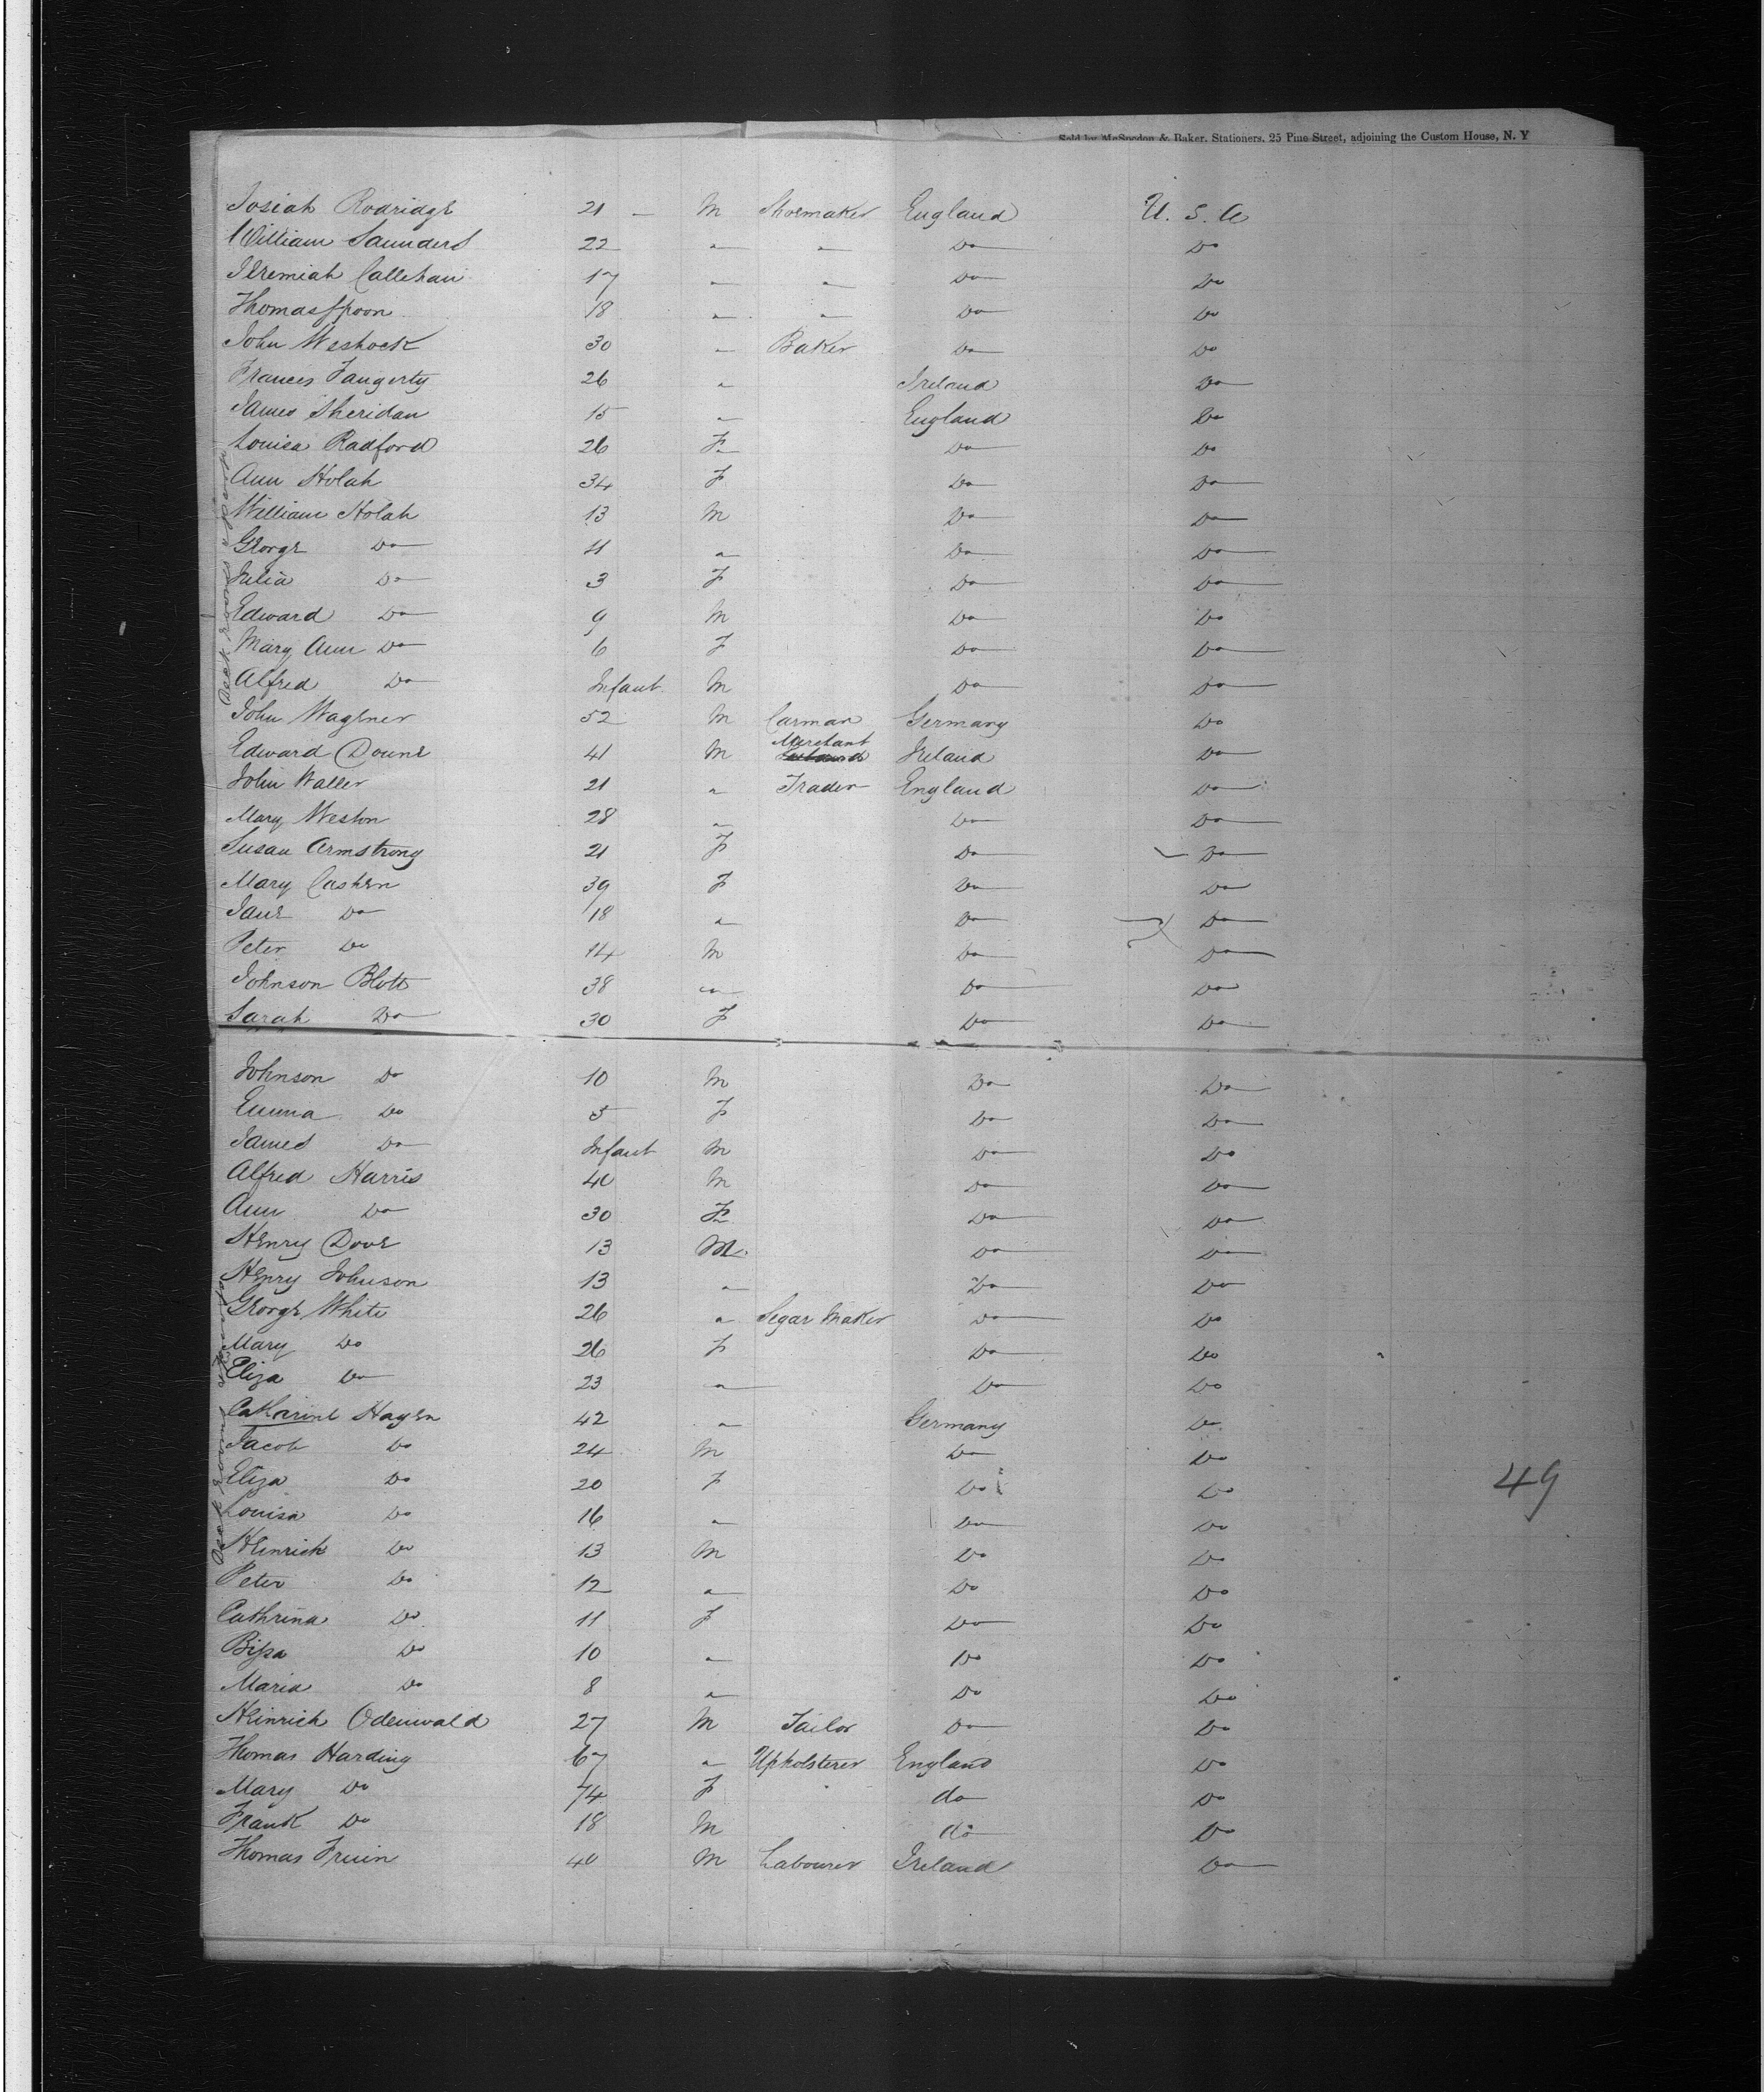 Sold by McSpedon & Baker, Stationers, 25 Pine Street, adjoining the Custom House, N. Y
Josiah Rodridge 21 - M Shoemaker England U. S. A
William Saunders 22 " " Do Do
Jeremiah Callehan 17 " " Do Do
Thomas Spoon 18 " " Do Do
John Weshock 30 " Baker Do Do
Frances Faugerty 26 " Ireland Do
James Sheridan 15 " England Do
Louisa Radford 26 F Do Do
Ann Holah 34 F Do Do
William Holah 13 M Do Do
George Do 11 " Do Do
Julia Do 3 F Do Do
Edward Do 9 M Do Do
Mary Ann Do 6 F Do Do
Alfred Do Infant M Do Do
John Wagener 52 M Carman Germany Do
Edward Doune 41 M Merchant Ireland Do
John Waller 21 " Trader England Do
Mary Weston 28 " Do Do
Susan Armstrong 21 F Do Do
Mary Cashen 39 F Do Do
Jane Do 18 " Do Do
Peter Do 14 M Do Do
Johnson Blott 38 " Do Do
Sarah Do 30 F Do Do
Johnson Do 10 M Do Do
Emma Do 5 F Do Do
James Do Infant M Do Do
Alfred Harris 40 M Do Do
Ann Do 30 F Do Do
Henry Dove 13 M Do Do
Henry Johnson 13 " Do Do
George White 26 " Segar Maker Do Do
Mary Do 26 F Do Do
Eliza Do 23 " Do Do
Catharine Hagen 42 " Germany Do
Jacob Do 24 M Do Do
Eliza Do 20 F Do Do
Louisa Do 16 " Do Do
Heinrich Do 13 M Do Do
Peter Do 12 " Do Do
Cathrina Do 11 F Do Do
Do 10 " Do Do
Maria Do 8 " Do Do
Heinrich Odenwald 27 M Tailor Do Do
Thomas Harding 67 " Upholsterer England Do
Mary Do 74 F do Do
Frank Do 18 M do Do
Thomas Fruin 40 M Labourer Ireland Do
49